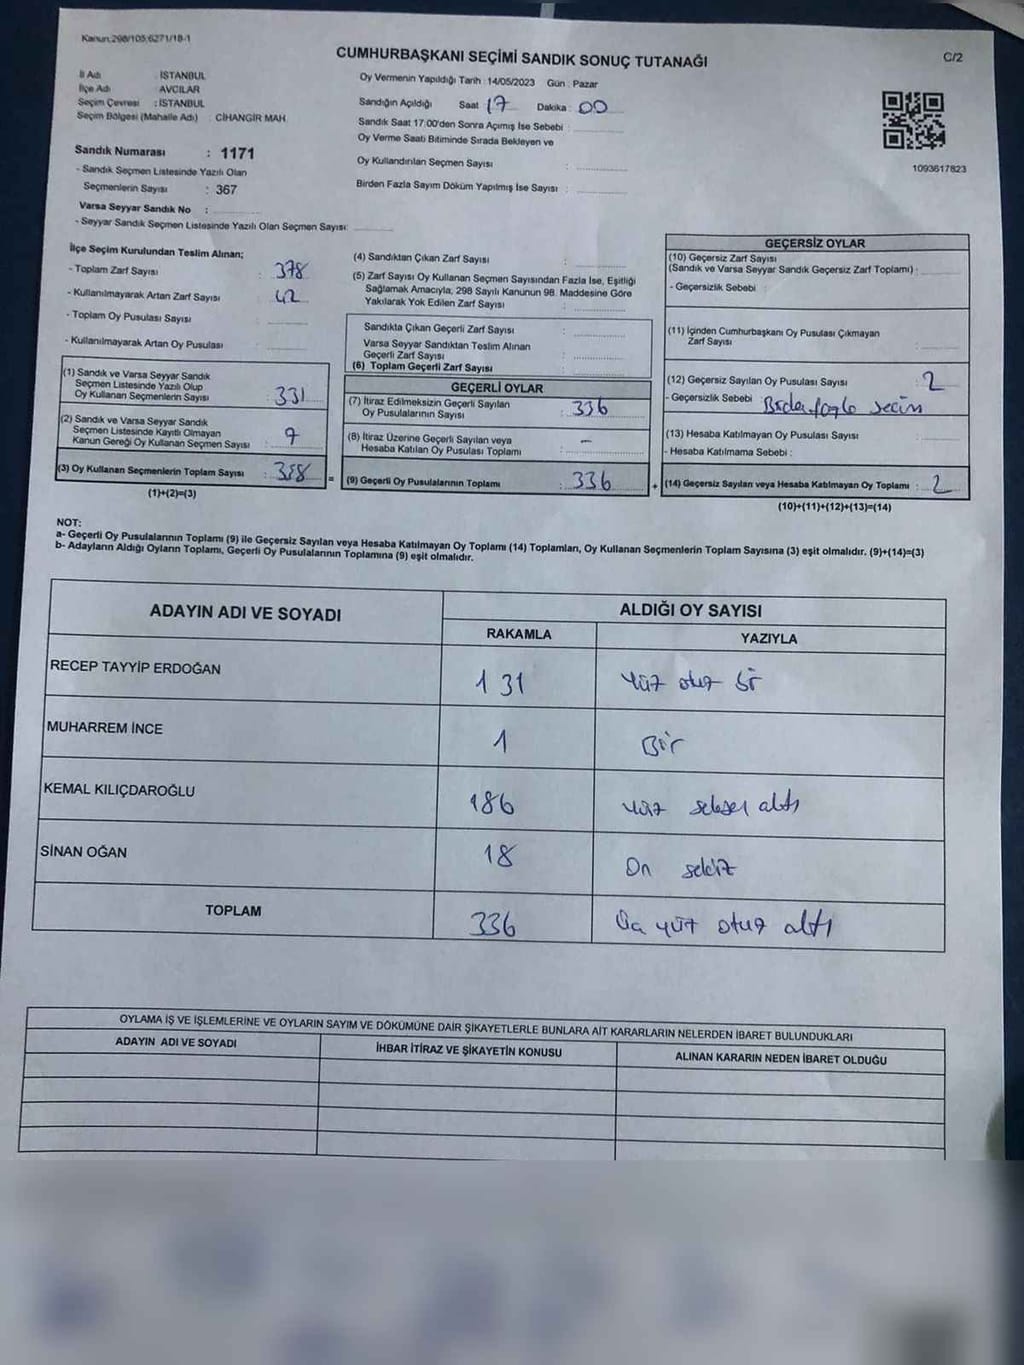 Kanun:298/105;6271/18-1
CUMHURBAŞKANI SEÇİMİ SANDIK SONUÇ TUTANAĞI
C/2
İl Adı : İSTANBUL
İlçe Adı : AVCILAR
Seçim Çevresi : İSTANBUL
Seçim Bölgesi (Mahalle Adı) : CİHANGİR MAH.
Sandık Numarası : 1171
- Sandık Seçmen Listesinde Yazılı Olan
Seçmenlerin Sayısı : 367
Varsa Seyyar Sandık No :
- Seyyar Sandık Seçmen Listesinde Yazılı Olan Seçmen Sayısı:
Oy Vermenin Yapıldığı Tarih : 14/05/2023 Gün : Pazar
Sandığın Açıldığı Saat 17 Dakika : 00
Sandık Saat 17:00'den Sonra Açımış İse Sebebi :
Oy Verme Saati Bitiminde Sırada Bekleyen ve
Oy Kullandırılan Seçmen Sayısı :
Birden Fazla Sayım Döküm Yapılmış İse Sayısı :
1093617823
İlçe Seçim Kurulundan Teslim Alınan;
- Toplam Zarf Sayısı : 378
- Kullanılmayarak Artan Zarf Sayısı : 42
- Toplam Oy Pusulası Sayısı :
- Kullanılmayarak Artan Oy Pusulası :
(1) Sandık ve Varsa Seyyar Sandık
Seçmen Listesinde Yazılı Olup
Oy Kullanan Seçmenlerin Sayısı : 331
(2) Sandık ve Varsa Seyyar Sandık
Seçmen Listesinde Kayıtlı Olmayan
Kanun Gereği Oy Kullanan Seçmen Sayısı : 7
(3) Oy Kullanan Seçmenlerin Toplam Sayısı : 338 =
(1)+(2)=(3)
(4) Sandıktan Çıkan Zarf Sayısı :
(5) Zarf Sayısı Oy Kullanan Seçmen Sayısından Fazla İse, Eşitliği
Sağlamak Amacıyla, 298 Sayılı Kanunun 98. Maddesine Göre
Yakılarak Yok Edilen Zarf Sayısı :
Sandıkta Çıkan Geçerli Zarf Sayısı :
Varsa Seyyar Sandıktan Teslim Alınan
Geçerli Zarf Sayısı :
(6) Toplam Geçerli Zarf Sayısı :
GEÇERLİ OYLAR
(7) İtiraz Edilmeksizin Geçerli Sayılan
Oy Pusulalarının Sayısı : 336
(8) İtiraz Üzerine Geçerli Sayılan veya
Hesaba Katılan Oy Pusulası Toplamı : –
(9) Geçerli Oy Pusulalarının Toplamı : 336 +
GEÇERSİZ OYLAR
(10) Geçersiz Zarf Sayısı
(Sandık ve Varsa Seyyar Sandık Geçersiz Zarf Toplamı) :
- Geçersizlik Sebebi :
(11) İçinden Cumhurbaşkanı Oy Pusulası Çıkmayan
Zarf Sayısı :
(12) Geçersiz Sayılan Oy Pusulası Sayısı : 2
- Geçersizlik Sebebi : Birden fazla seçim
(13) Hesaba Katılmayan Oy Pusulası Sayısı :
- Hesaba Katılmama Sebebi :
(14) Geçersiz Sayılan veya Hesaba Katılmayan Oy Toplamı : 2
(10)+(11)+(12)+(13)=(14)
NOT:
a- Geçerli Oy Pusulalarının Toplamı (9) ile Geçersiz Sayılan veya Hesaba Katılmayan Oy Toplamı (14) Toplamları, Oy Kullanan Seçmenlerin Toplam Sayısına (3) eşit olmalıdır. (9)+(14)=(3)
b- Adayların Aldığı Oyların Toplamı, Geçerli Oy Pusulalarının Toplamına (9) eşit olmalıdır.
ADAYIN ADI VE SOYADI
ALDIĞI OY SAYISI
RAKAMLA YAZIYLA
RECEP TAYYİP ERDOĞAN 131 Yüz otuz bir
MUHARREM İNCE 1 Bir
KEMAL KILIÇDAROĞLU 186 Yüz seksen altı
SİNAN OĞAN 18 On sekiz
TOPLAM 336 Üç yüz otuz altı
OYLAMA İŞ VE İŞLEMLERİNE VE OYLARIN SAYIM VE DÖKÜMÜNE DAİR ŞİKAYETLERLE BUNLARA AİT KARARLARIN NELERDEN İBARET BULUNDUKLARI
ADAYIN ADI VE SOYADI
İHBAR İTİRAZ VE ŞİKAYETİN KONUSU
ALINAN KARARIN NEDEN İBARET OLDUĞU